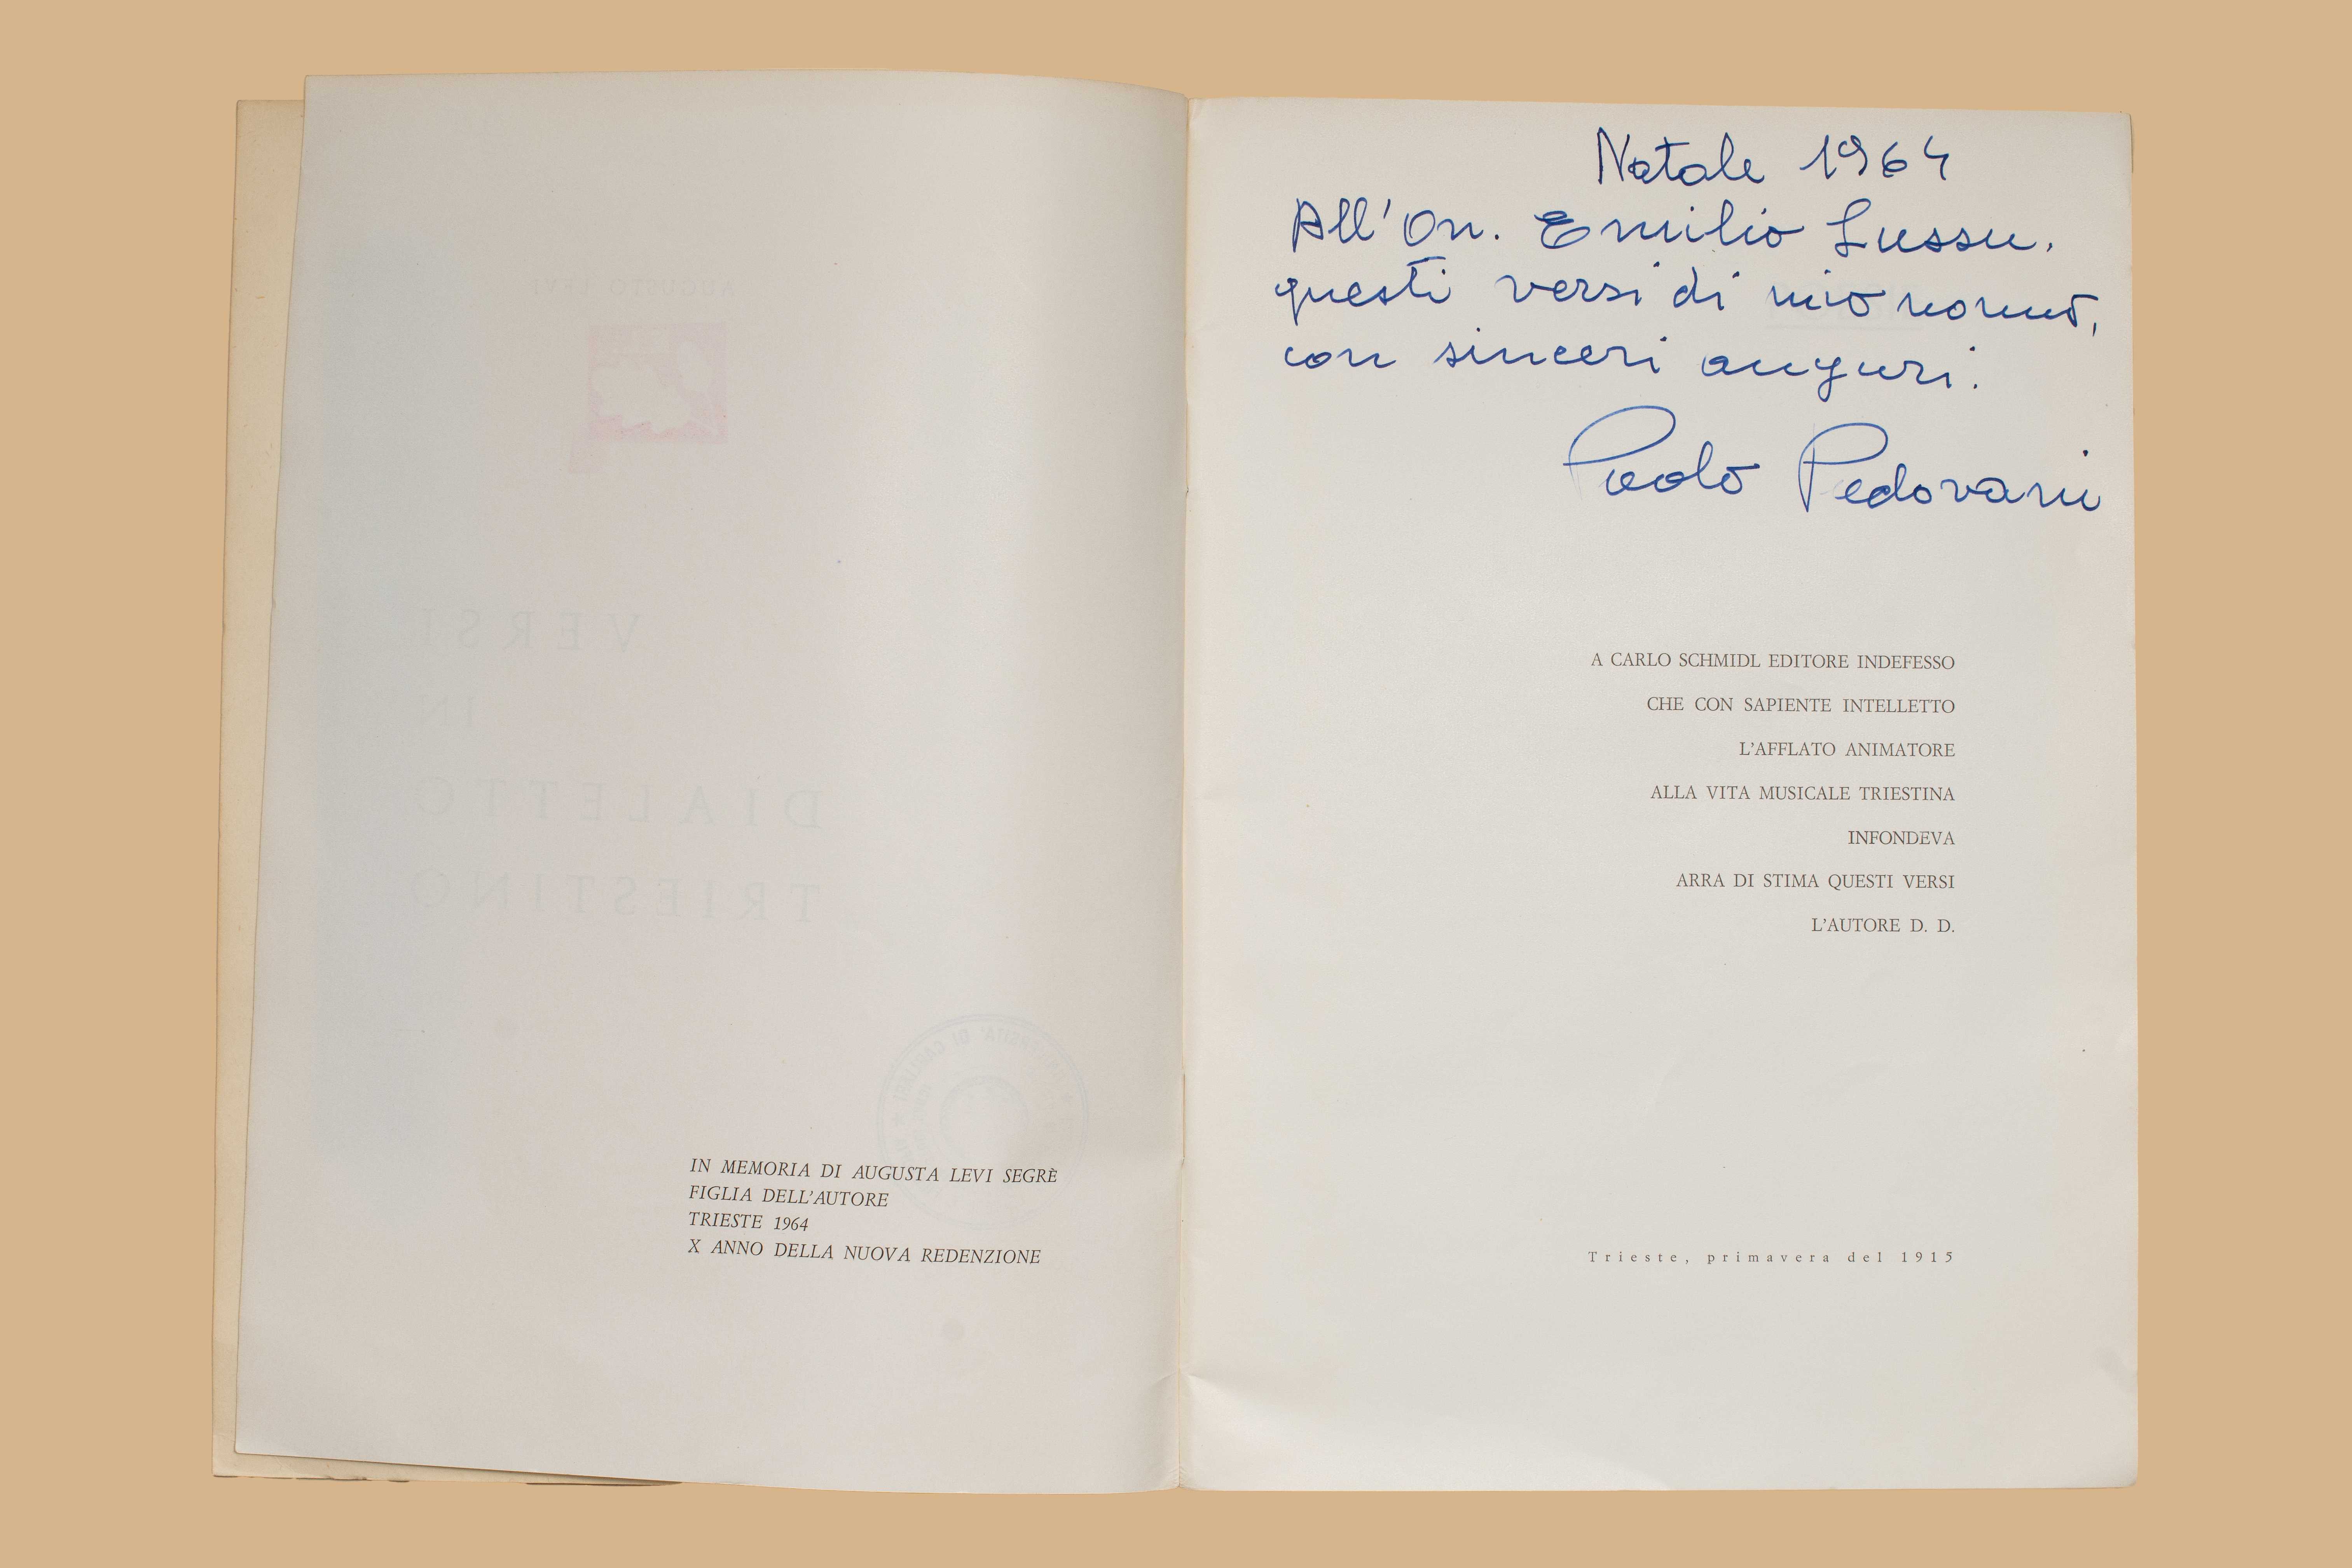 AUGUSTO LEVI
VERSI
IN
DIALETTO
TRIESTINO
IN MEMORIA DI AUGUSTA LEVI SEGRÈ
FIGLIA DELL'AUTORE
TRIESTE 1964
X ANNO DELLA NUOVA REDENZIONE
Natale 1964
All'On. Emilio Lussu,
questi versi di mio nonno,
con sinceri auguri.
Paolo Padovani
A CARLO SCHMIDL EDITORE INDEFESSO
CHE CON SAPIENTE INTELLETTO
L'AFFLATO ANIMATORE
ALLA VITA MUSICALE TRIESTINA
INFONDEVA
ARRA DI STIMA QUESTI VERSI
L'AUTORE D. D.
Trieste, primavera del 1915